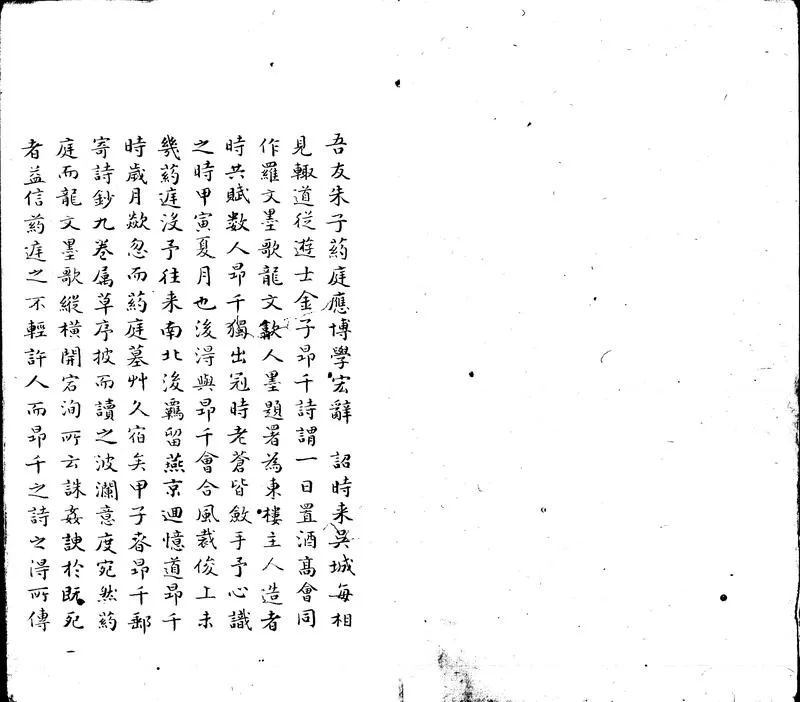 吾友朱子葯庭應博學宏辭　詔時来吳城每相
見輙道従遊士金子昂千詩謂一日置酒髙會同
作羅文墨歌龍文歙人墨題署為東樓主人造者
時共賦数人昂千獨出冠時老蒼皆斂手予心識
之時甲寅夏月也後淂與昂千會合風裁俊上未
幾葯庭沒予往来南北後羈留燕京迴憶道昂千
時歲月歘忽而葯庭墓艸久宿矣甲子春昂千郵
寄詩鈔九卷属草序披而讀之波瀾意度宛然葯
庭而龍文墨歌縱横開宕洵所云誅姦諛於既死
者益信葯庭之不輕許人而昂千之詩之淂所傳
一